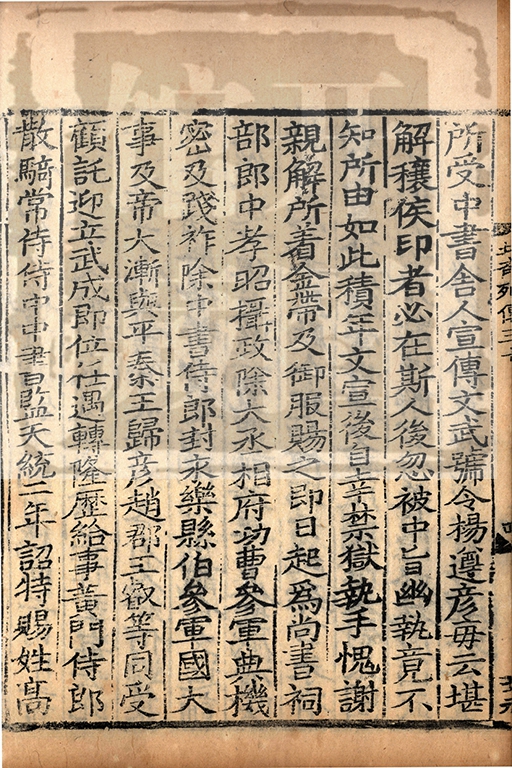 所受中書舍人宣傳文武號令楊遵彦毎云堪
解穰侯印者必在斯人後忽被中旨幽執竟不
知所由如此積年文宣後自幸禁獄執手愧謝
親解所着金帶及御服賜之即日起為尚書祠
部郎中孝昭攝政除大丞相府功曹參軍典機
密及踐祚除中書侍郎封永樂縣伯參軍國大
事及帝大漸與平秦王歸彦趙郡王叡等同受
顧託迎立武成即位任遇轉隆歷給事黄門侍郎
散騎常侍侍中中書監天統二年詔特賜姓高